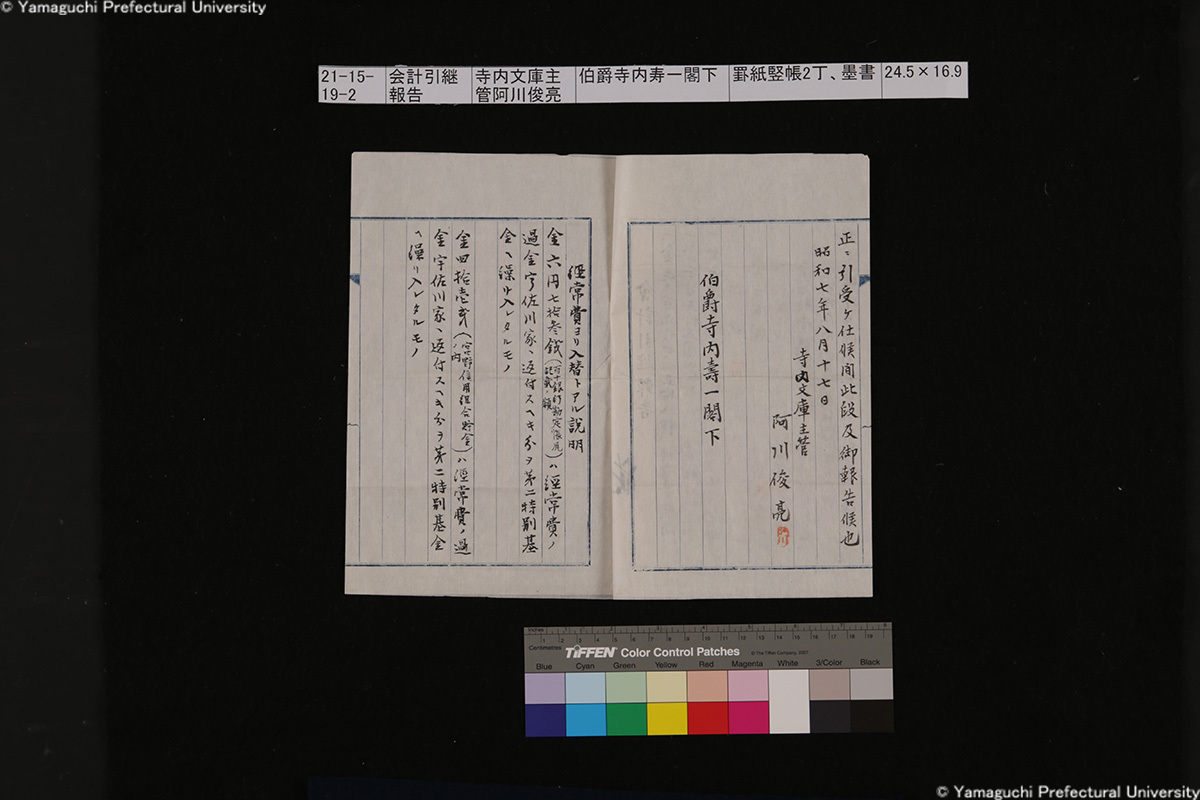 © Yamaguchi Prefectural University
21-15-19-2 会計引継報告 寺内文庫主管阿川俊亮 伯爵寺内寿一閣下 罫紙竪帳2丁、墨書 24.5×16.9
正ニ引受ケ仕候間此段及御報告候也
昭和七年八月十七日
寺内文庫主管
阿川俊亮
伯爵寺内壽一閣下
經常費ヨリ入替トアル説明
金六円七拾参銭(百十銀行物定 )ハ經常費ノ
過金宇佐川家ヘ返付スヘキ分ヲ第二特別基
金ヘ繰リ入レタルモノ
金四拾壱銭(宮野信用組合貯金ノ内)ハ經常費ノ過
金宇佐川家ヘ返付スヘキ分ヲ第二特別基金
ヘ繰リ入レタルモノ
Inches
Centimetres
TIFFEN Color Control Patches © The Tiffen Company, 2007
Blue Cyan Green Yellow Red Magenta White 3/Color Black
© Yamaguchi Prefectural University